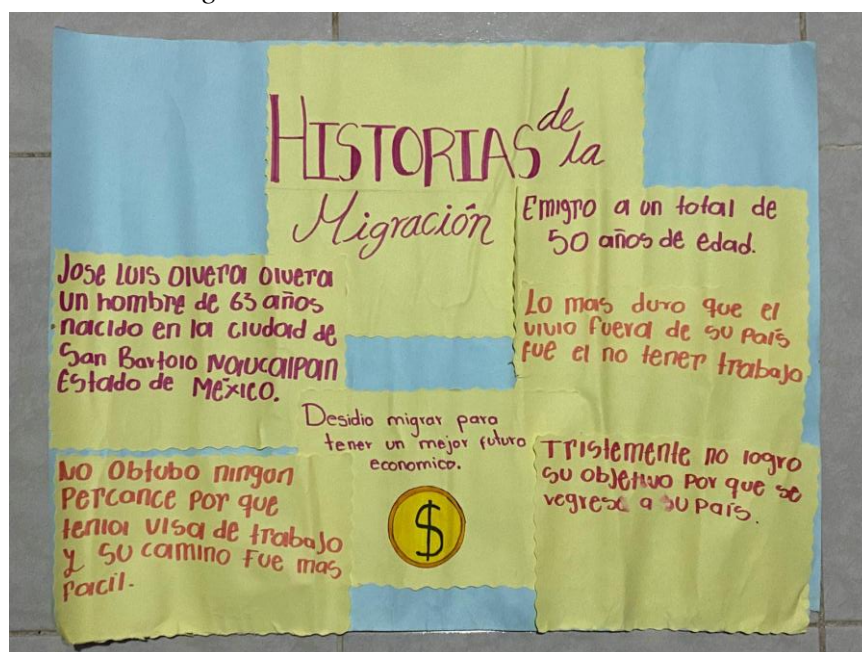 HISTORIAS de la
Migración
Jose Luis Olvera Olvera
un hombre de 63 años
nacido en la ciudad de
San Bartolo Naucalpan
Estado de México.
Emigro a un total de
50 años de edad.
Lo mas duro que el
vivio fuera de su País
fue el no tener trabajo
Desidio migrar para
tener un mejor futuro
economico.
$
No Obtubo ningun
Percance Por que
tenia visa de trabajo
y su camino fue mas
facil.
Tristemente no logro
su objetivo Por que se
regreso a su País.